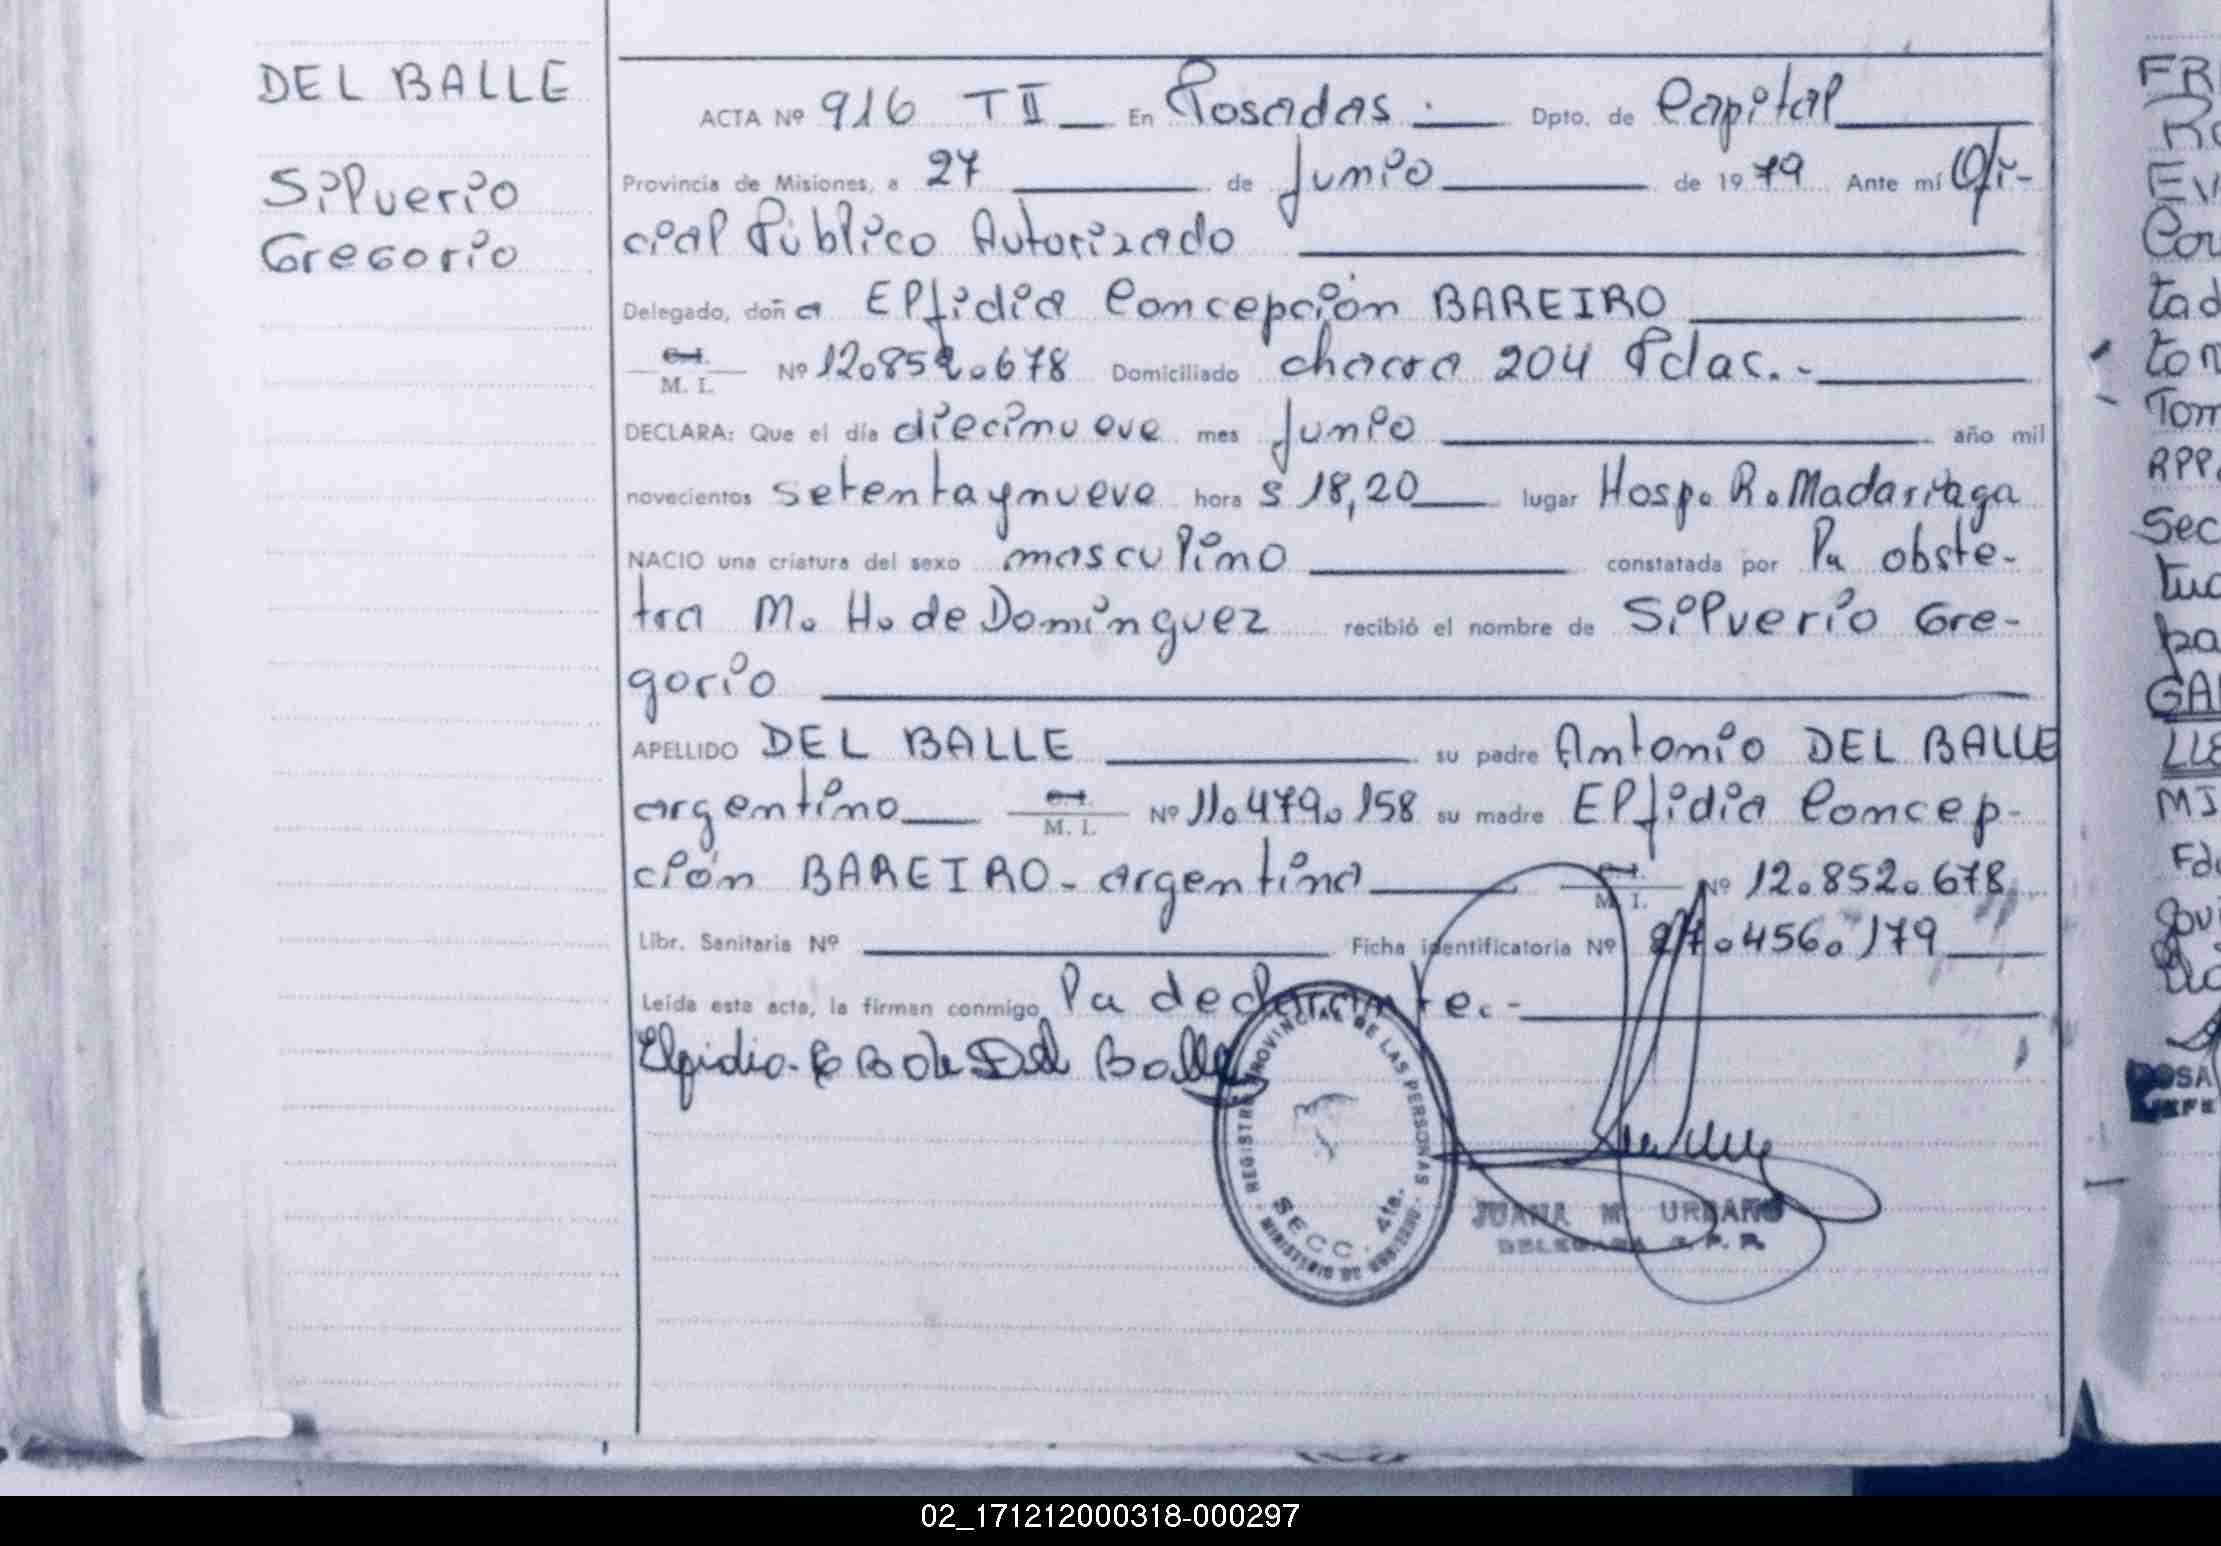 DEL BALLE
Silverio
Gregorio
ACTA Nº 916 TII En Posadas. Dpto. de Capital
Provincia de Misiones, a 27 de Junio de 1979 Ante mí Ofi-
cial Público Autorizado
Delegado, doña Elfidia Concepción BAREIRO
C.I.
M. I. Nº 12.852.678 Domiciliado chacra 204 Pdas.-
DECLARA: Que el día diecinueve mes Junio año mil
novecientos setenta y nueve hora s 18,20 lugar Hosp. R. Madariaga
NACIO una criatura del sexo masculino constatada por la obste-
tra M. H. de Domínguez recibió el nombre de Silverio Gre-
gorio
APELLIDO DEL BALLE su padre Antonio DEL BALLE
argentino C.I. M. I. Nº 11.479.158 su madre Elfidia Concep-
ción BAREIRO - argentina C.I. M. I. Nº 12.852.678
Libr. Sanitaria Nº Ficha identificatoria Nº 27.456.179
Leída esta acta, la firman conmigo la declarante.-
Elpidia C B de Del Balle
REGISTRO PROVINCIAL DE LAS PERSONAS
SECC. 4ta.
MINISTERIO DE GOBIERNO
JUANA M. URBANO
DELEGADA R.P.P.
FR
Ro
EV
Con
tad
ton
Tom
RPP.
Sec
tuc
pa
GAL
LLE
MI
Fdo
OSA
JEFE
02_171212000318-000297